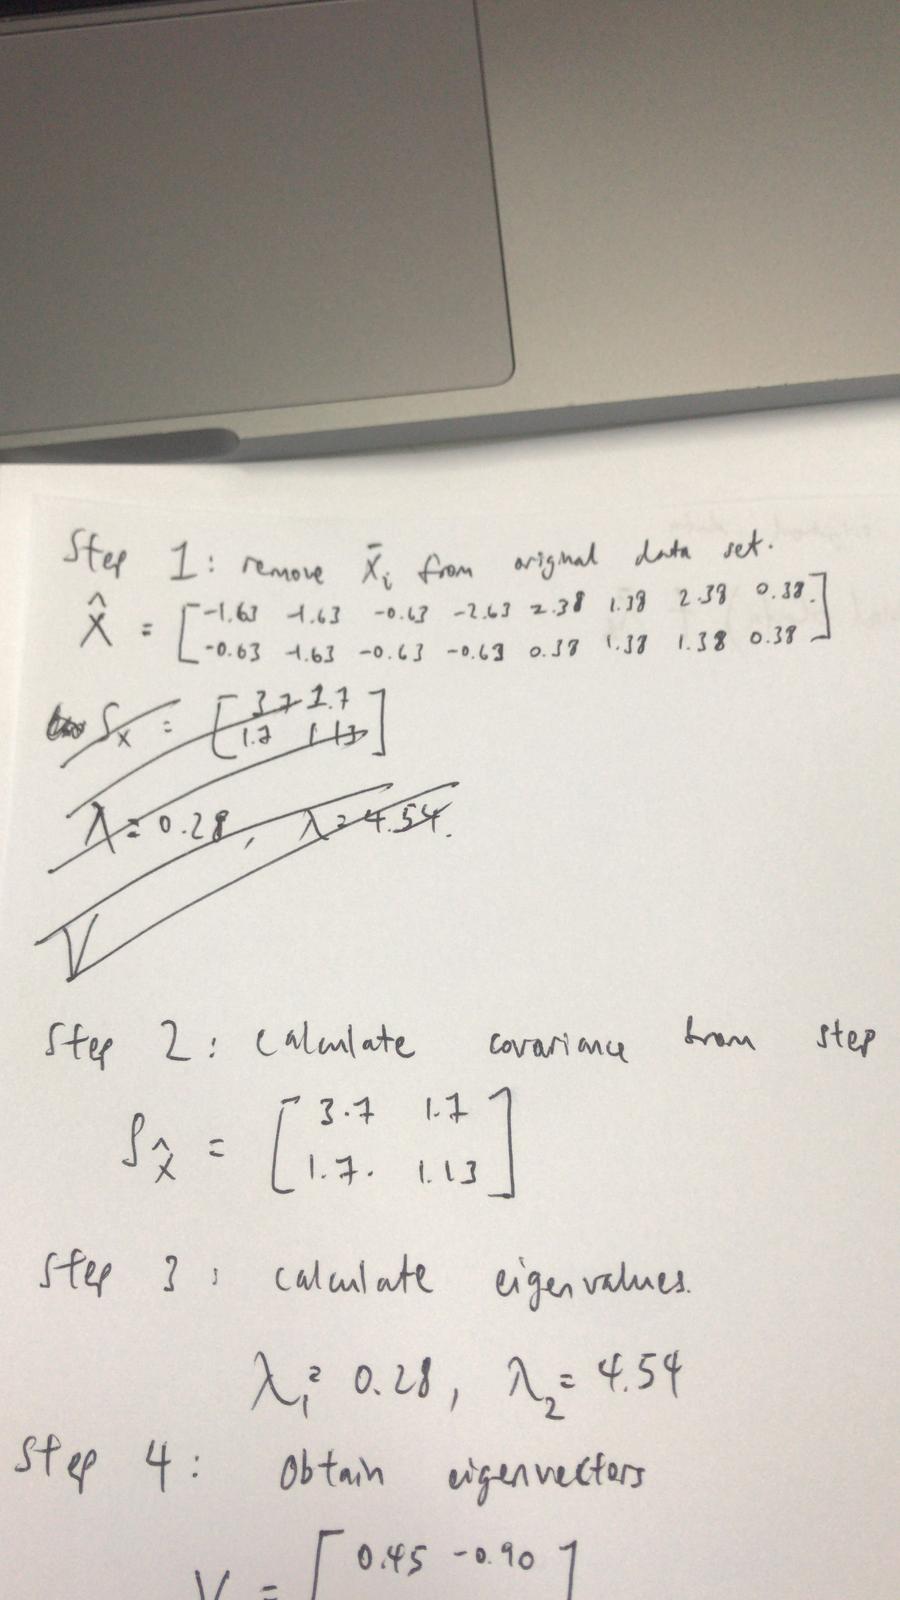 Step 1: remove x̄ᵢ from original data set.
X̂ = [-1.63 -1.63 -0.63 -2.63 2.38 1.38 2.38 0.38.]
[-0.63 -1.63 -0.63 -0.63 0.38 1.38 1.38 0.38]
Sₓ = [3.7 1.7]
[1.7 1.13]
λ = 0.28, λ = 4.54.
V
Step 2: calculate covariance from step
S_X̂ = [3.7 1.7]
[1.7. 1.13]
Step 3: calculate eigenvalues.
λ₁ = 0.28, λ₂ = 4.54
Step 4: Obtain eigenvectors
V = [0.45 -0.90]